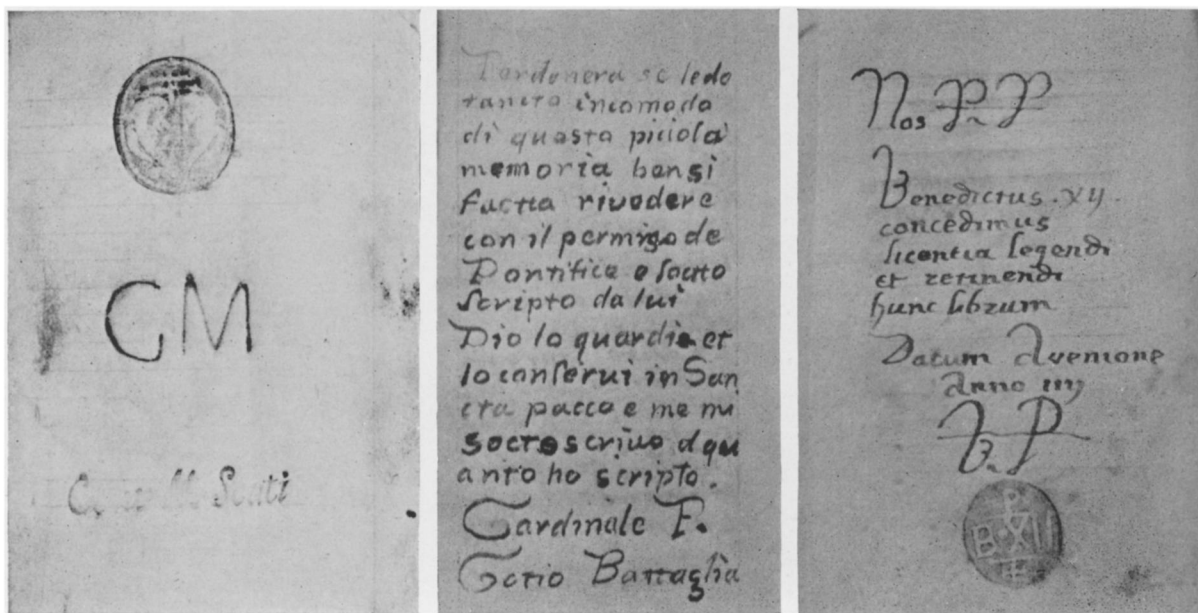 GM
Scuti
Pardonera se ledo
tancto incomodo
di questa piciola
memoria bensi
facta rivedere
con il permiso de
Pontifice e socto
scripto da lui
Dio lo guardi et
lo conserui in San
cta pacce e me mi
soctoscrivo a qu
anto ho scripto.
Cardinale F.
Gotio Battaglia
Nos PP
Benedictus . XIJ
concedimus
licentia legendi
et retinendi
hunc librum
Datum Avenione
Anno IIIJ
B. P
P
B·XII